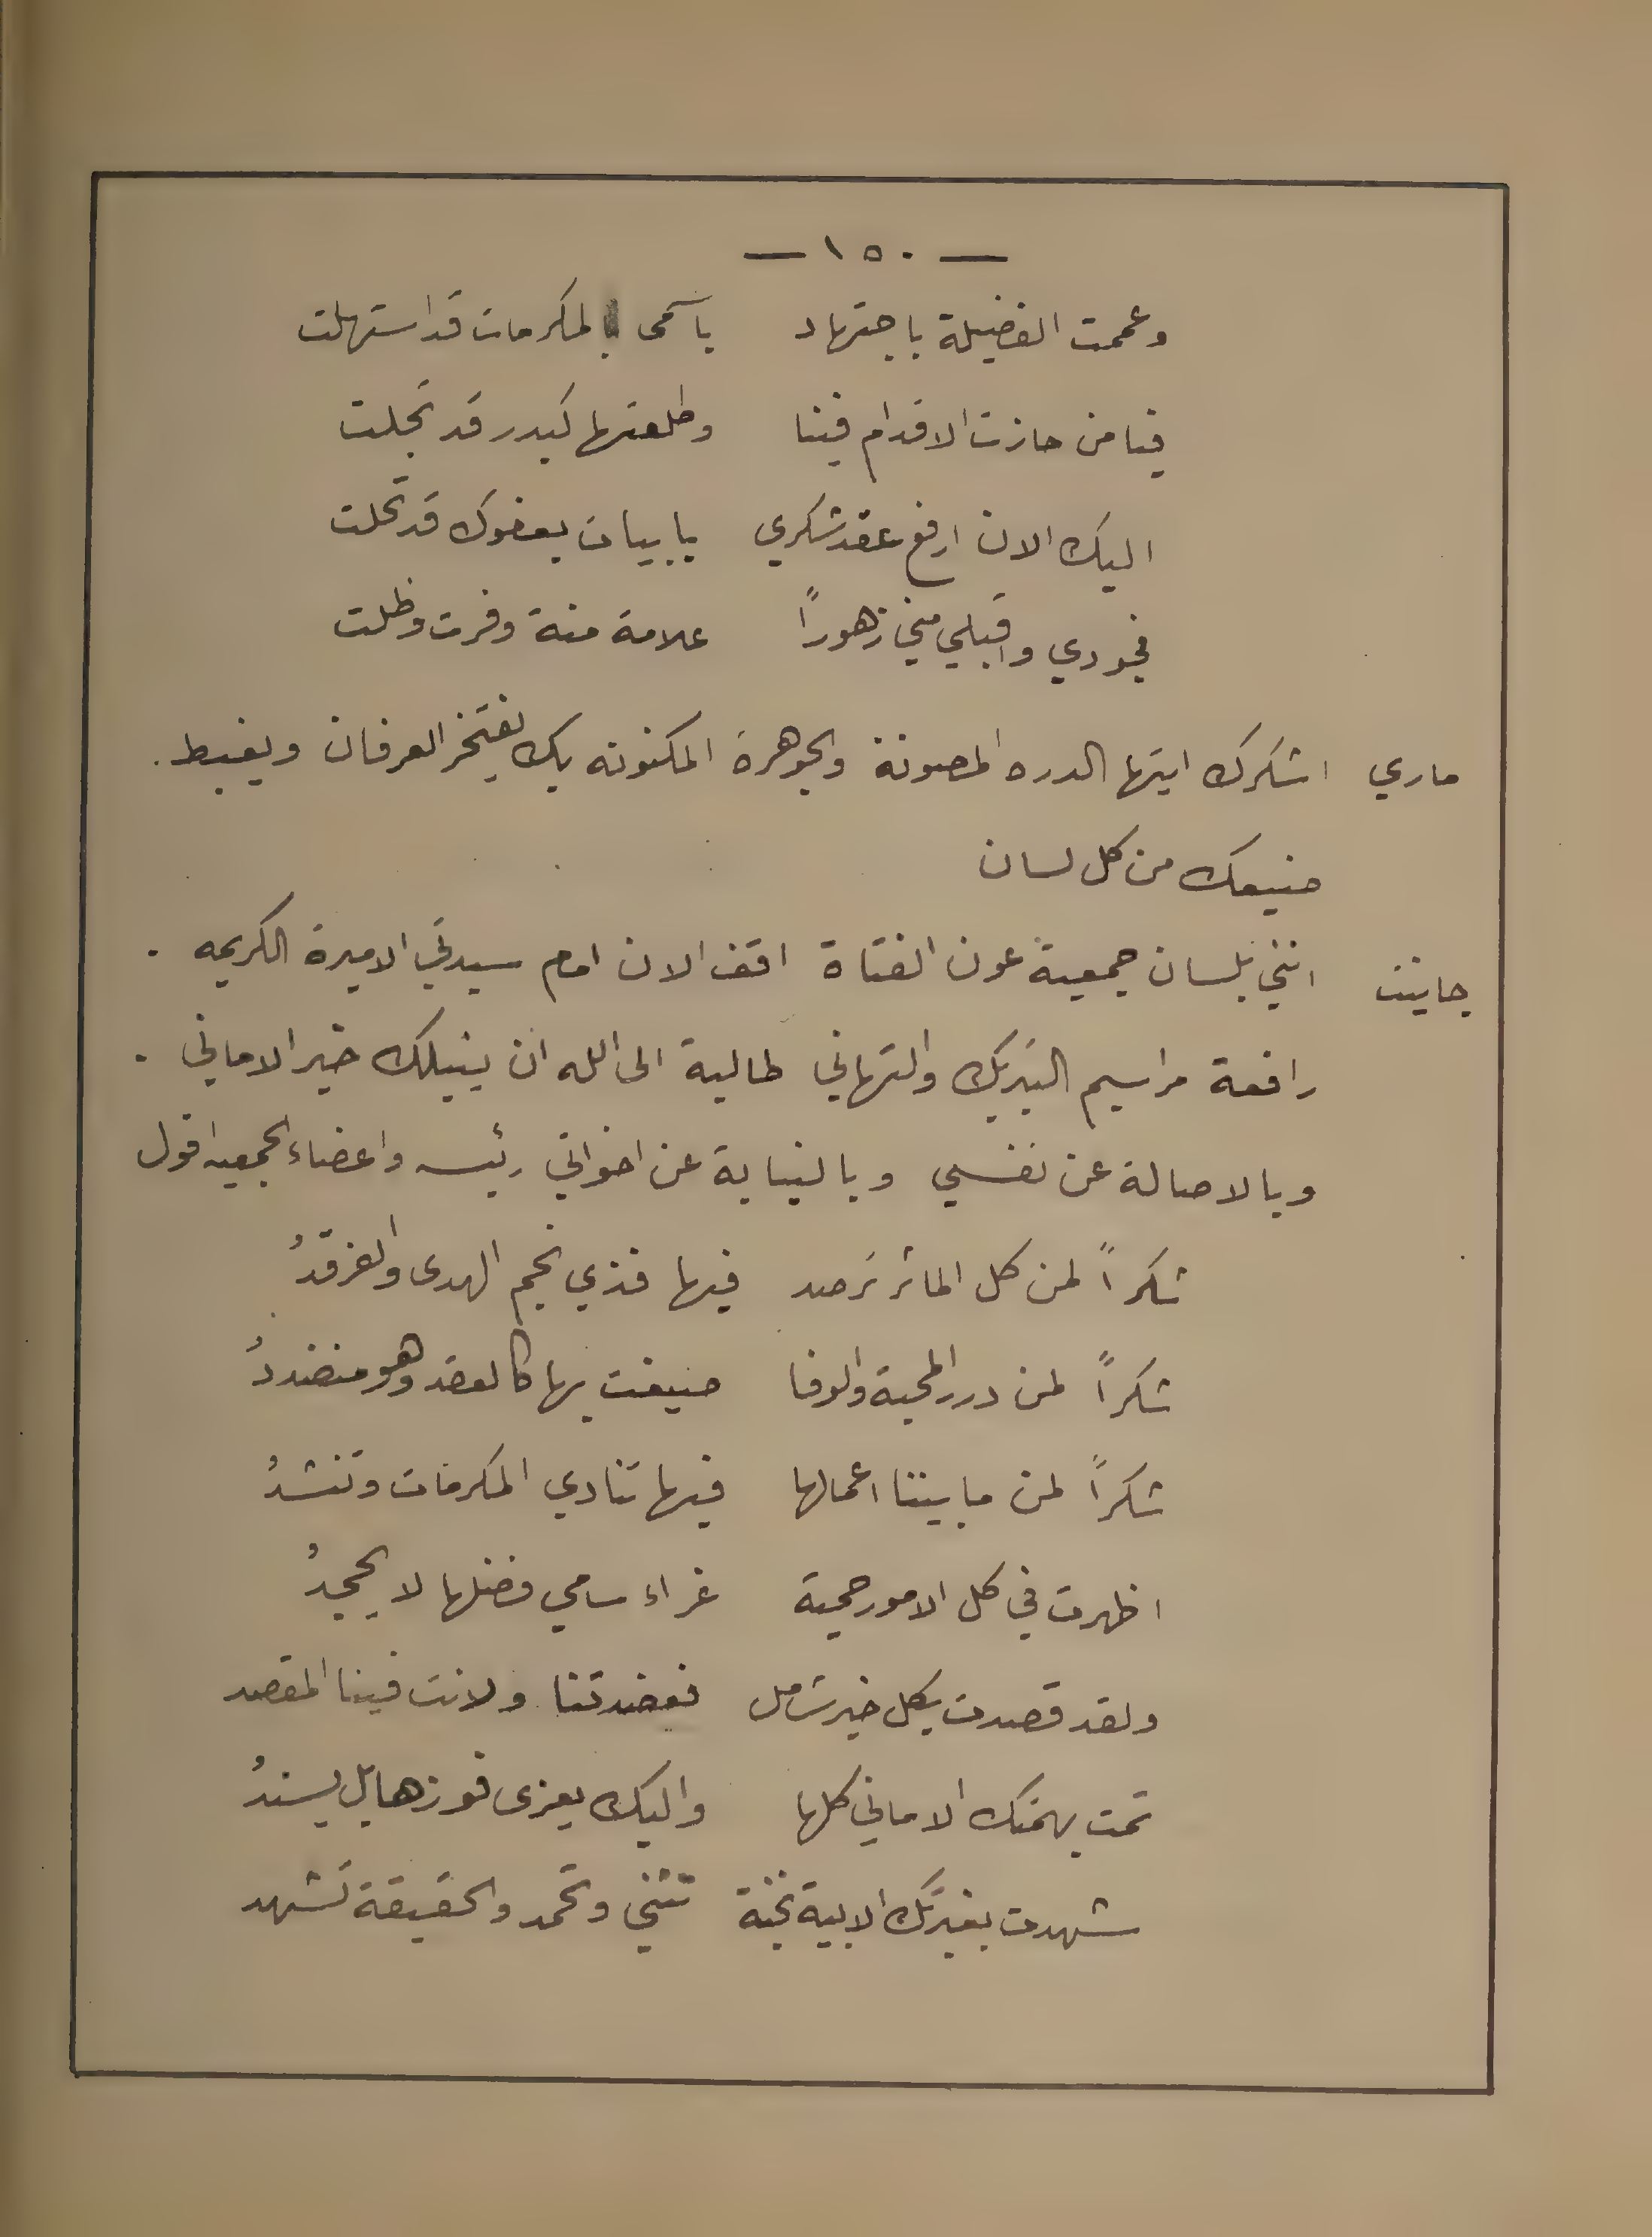 — ١٥٠ —
وعممت الفضيلة باجتهاد    باسمى بالمكرمات قد استهلت
فيا من حازت الاقدام فينا    وطلعتها كبدر قد تجلت
اليك الان ارفع عقد شكري    بابيات بعفوك قد تحلت
فجودي واقبلي مني زهوراً    علامة منة وفرت وظلت
ماري    اشكرك ايتها الدره المصونة والجوهرة المكنونه بك يفتخر العرفان ويغبط .
صنيعك من كل لسان
جانيت    انني بلسان جمعية عون الفتاة اقف الان امام سيدتي الاميرة الكريمه .
رافعة مراسيم التبريك والتهاني طالبة الى الله ان ينيلك خير الاماني .
وبالاصالة عن نفسي وبالنيابة عن اخواتي رئيسه واعضاء الجمعيه اقول
شكراً لمن كل المائر ترصد    فيها فذي نجم الهدى والفرقدُ
شكراً لمن درر المحبة والوفا    صيغت بها كالعقد وهو منضددُ
شكراً لمن ما بيننا اعمالها    فيها تنادي المكرمات وتنشدُ
اظهرت في كل الامور حمية    غراء سامي فضلها لا يجحدُ
ولقد قصدت بكل خير شامل    فعضدتنا ولانت فينا المقصد
تمت بهمتك الاماني كلها    واليك يعزى فوزها بل يسندُ
شهدت بغيرتك الابية نخبة    تثني وتحمد والحقيقة تشهد